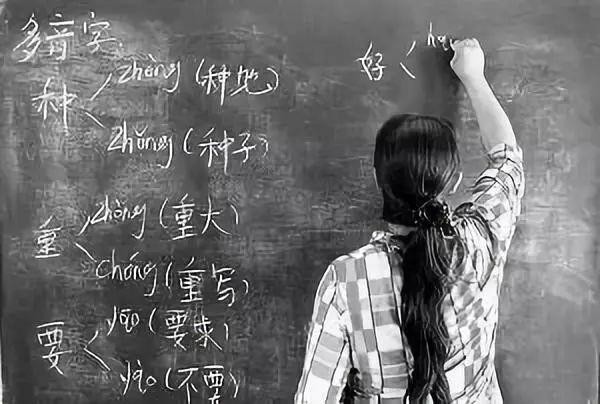 多音字
种
zhòng (种地)
zhǒng (种子)
重
zhòng (重大)
chóng (重写)
要
yāo (要求)
yào (不要)
好
ha